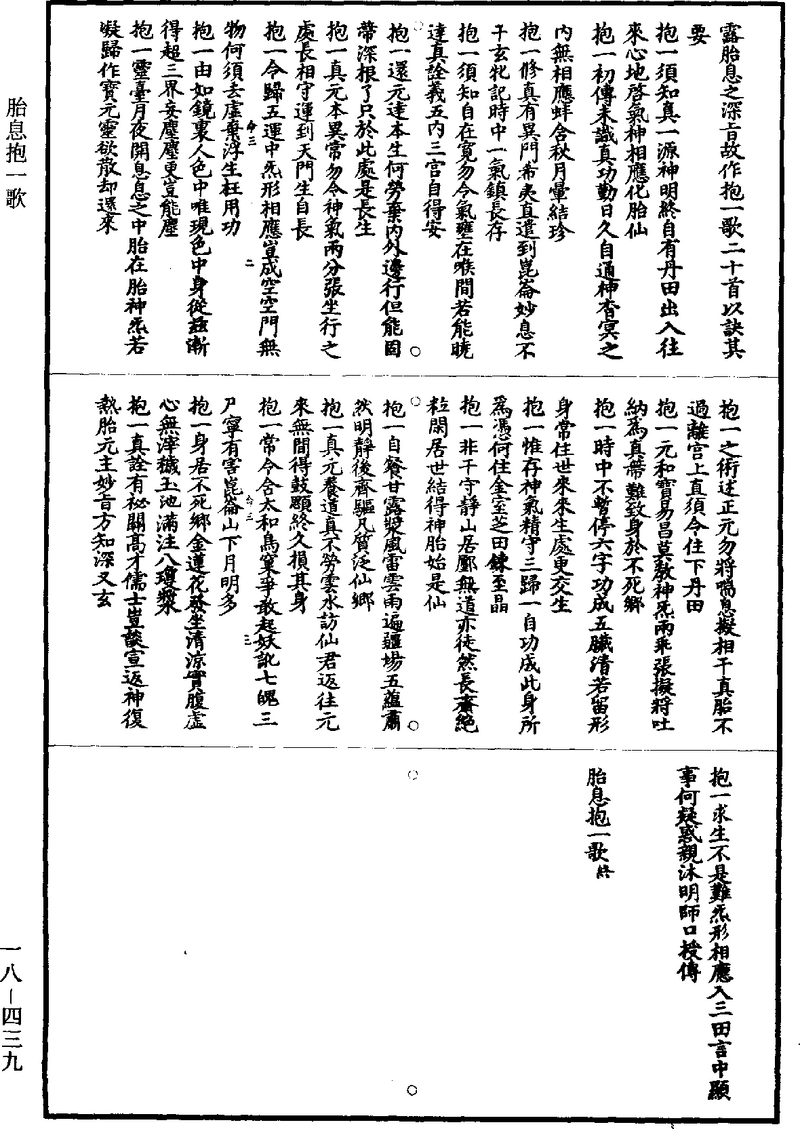 露胎息之深旨故作抱一歌二十首以訣其
要
抱一須知真一源神明終自有丹田出入往
來心地啓氣神相應化胎仙
抱一初傳未識真功勤日久自通神杳冥之
内無相應蚌含秋月暈結珍
抱一修真有異門希夷直遣到崑崙妙息不
干玄牝記時中一氣鎮長存
抱一須知自在寬勿令氣壅在喉間若能曉
達真詮義五内三宫自得安
抱一還元達本生何勞棄内外邊行但能固
蒂深根了只於此處是長生
抱一真元本異常勿令神氣兩分張坐行之
處長相守運到天門生自長
抱一令歸五運中炁形相應豈成空空門無
物何須去虚棄浮生枉用功
抱一由如鏡裏人色中唯現色中身從兹漸
得超三界妄塵塵更豈能塵
抱一靈臺月夜開息息之中胎在胎神炁若
凝歸作寶元靈欲散却還來
抱一之術述正元勿將喘息擬相干真胎不
過離宫上直須令住下丹田
抱一元和寶易昌莫教神炁兩乖張擬將吐
納爲真蒂難致身於不死鄉
抱一時中不暫停六字功成五臟清若留形
身常住世來來生處更交生
抱一惟存神氣精守三歸一自功成此身所
爲憑何住金室芝田鍊至晶
抱一非干守靜山居鄽無道亦徒然長齋絶
粒閑居世結得神胎始是仙
抱一自餐甘露漿風雷雲雨遍疆場五藴肅
然明靜後齊驅凡質泛仙鄉
抱一真元養道真不勞雲水訪仙君返往元
來無間得鼓顋終久損其身
抱一常令含太和鳥窠爭敢起妖訛七魄三
尸寧有害崑崙山下月明多
抱一身居不死鄉金蓮花發坐清涼實腹虚
心無滓穢玉池滿注八瓊漿
抱一真詮有祕關高才儒士豈談宣返神復
熱胎元主妙旨方知深又玄
抱一求生不是難炁形相應入三田言中顯
事何疑惑親沐明師口授傳
胎息抱一歌終
胎息抱一歌
一八－四三九